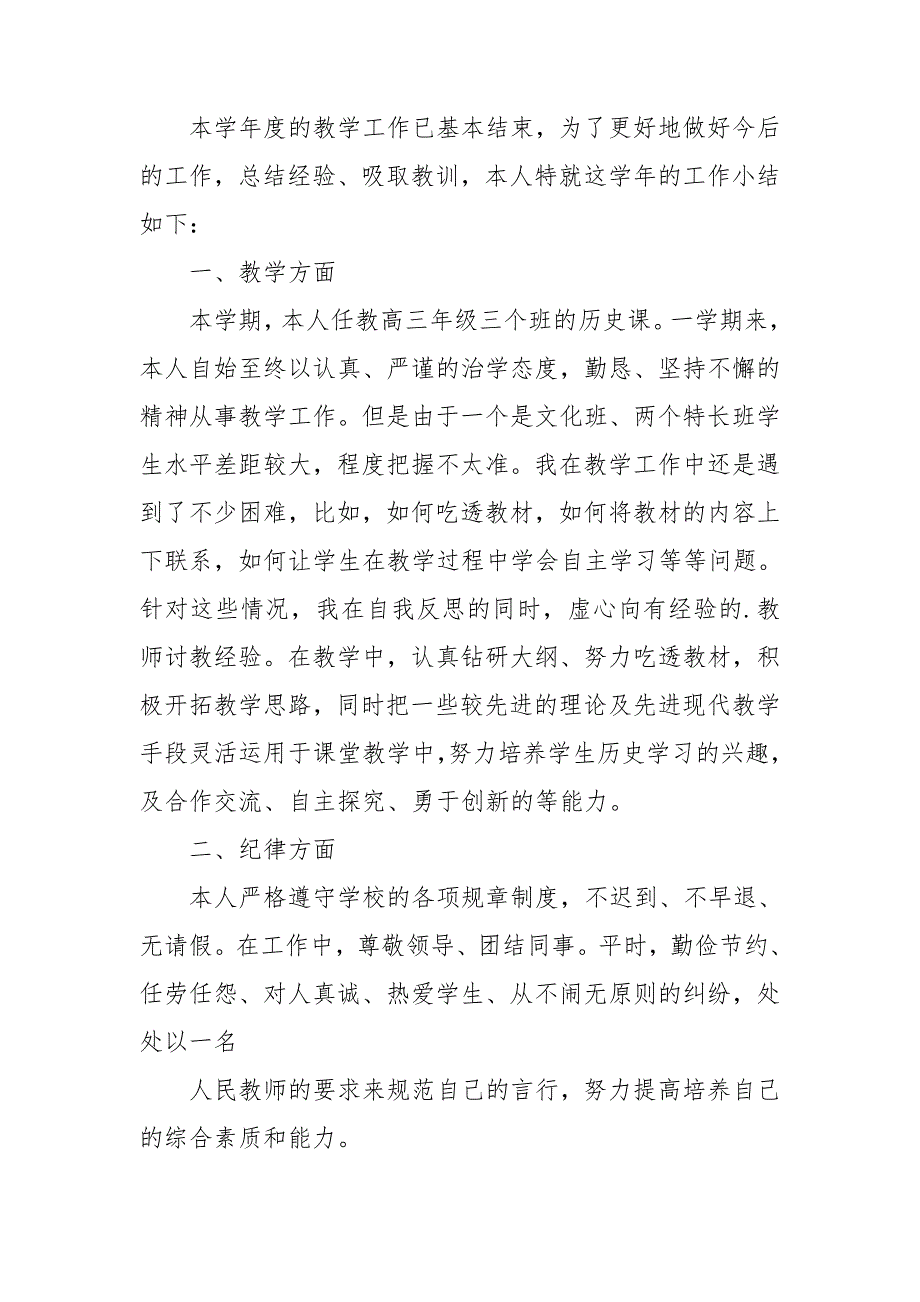 本学年度的教学工作已基本结束，为了更好地做好今后
的工作，总结经验、吸取教训，本人特就这学年的工作小结
如下：
一、教学方面
本学期，本人任教高三年级三个班的历史课。一学期来，
本人自始至终以认真、严谨的治学态度，勤恳、坚持不懈的
精神从事教学工作。但是由于一个是文化班、两个特长班学
生水平差距较大，程度把握不太准。我在教学工作中还是遇
到了不少困难，比如，如何吃透教材，如何将教材的内容上
下联系，如何让学生在教学过程中学会自主学习等等问题。
针对这些情况，我在自我反思的同时，虚心向有经验的.教
师讨教经验。在教学中，认真钻研大纲、努力吃透教材，积
极开拓教学思路，同时把一些较先进的理论及先进现代教学
手段灵活运用于课堂教学中，努力培养学生历史学习的兴趣，
及合作交流、自主探究、勇于创新的等能力。
二、纪律方面
本人严格遵守学校的各项规章制度，不迟到、不早退、
无请假。在工作中，尊敬领导、团结同事。平时，勤俭节约、
任劳任怨、对人真诚、热爱学生、从不闹无原则的纠纷，处
处以一名
人民教师的要求来规范自己的言行，努力提高培养自己
的综合素质和能力。